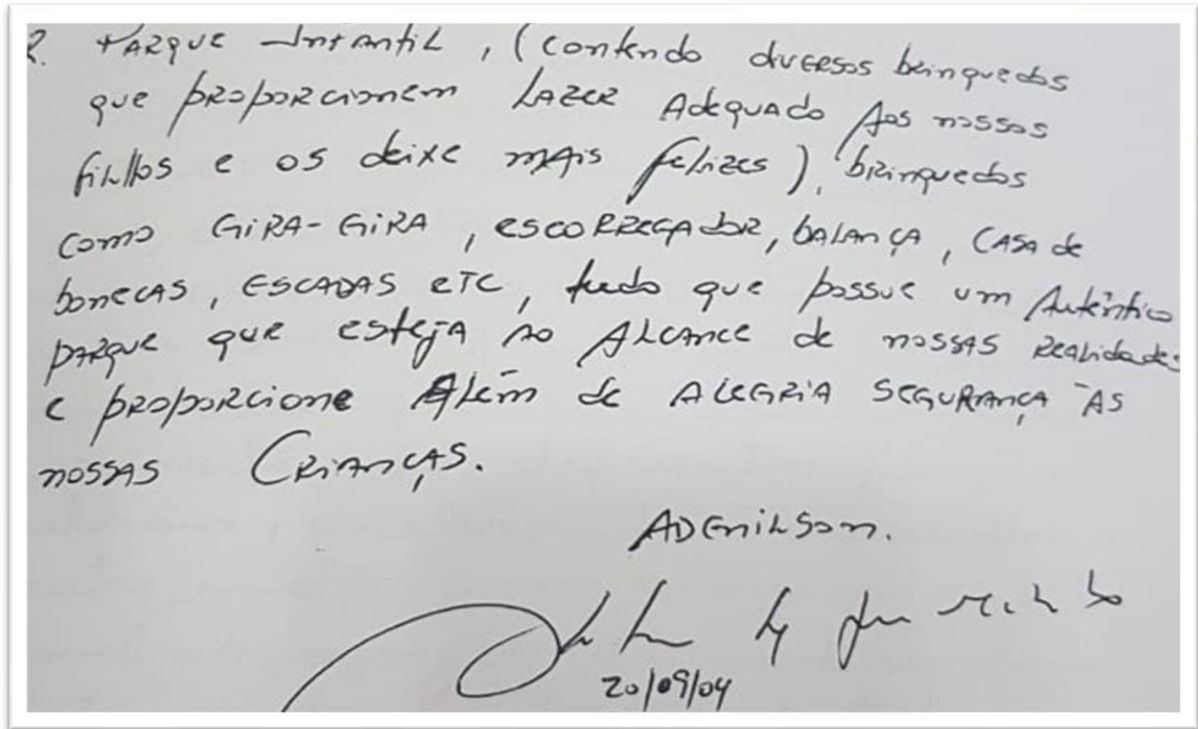 R. PARQUE Infantil, (contendo diversos brinquedos
que proporcionem LAZER Adequado Aos nossos
filhos e os deixe mais felizes), brinquedos
como GIRA-GIRA, escorregador, balança, CASA de
bonecas, ESCADAS etc, tudo que possue um Autêntico
parque que esteja ao Alcance de nossas realidades
e proporcione Além de ALEGRIA SEGURANÇA ÀS
nossas Crianças.
ADENILSON.
20/09/04